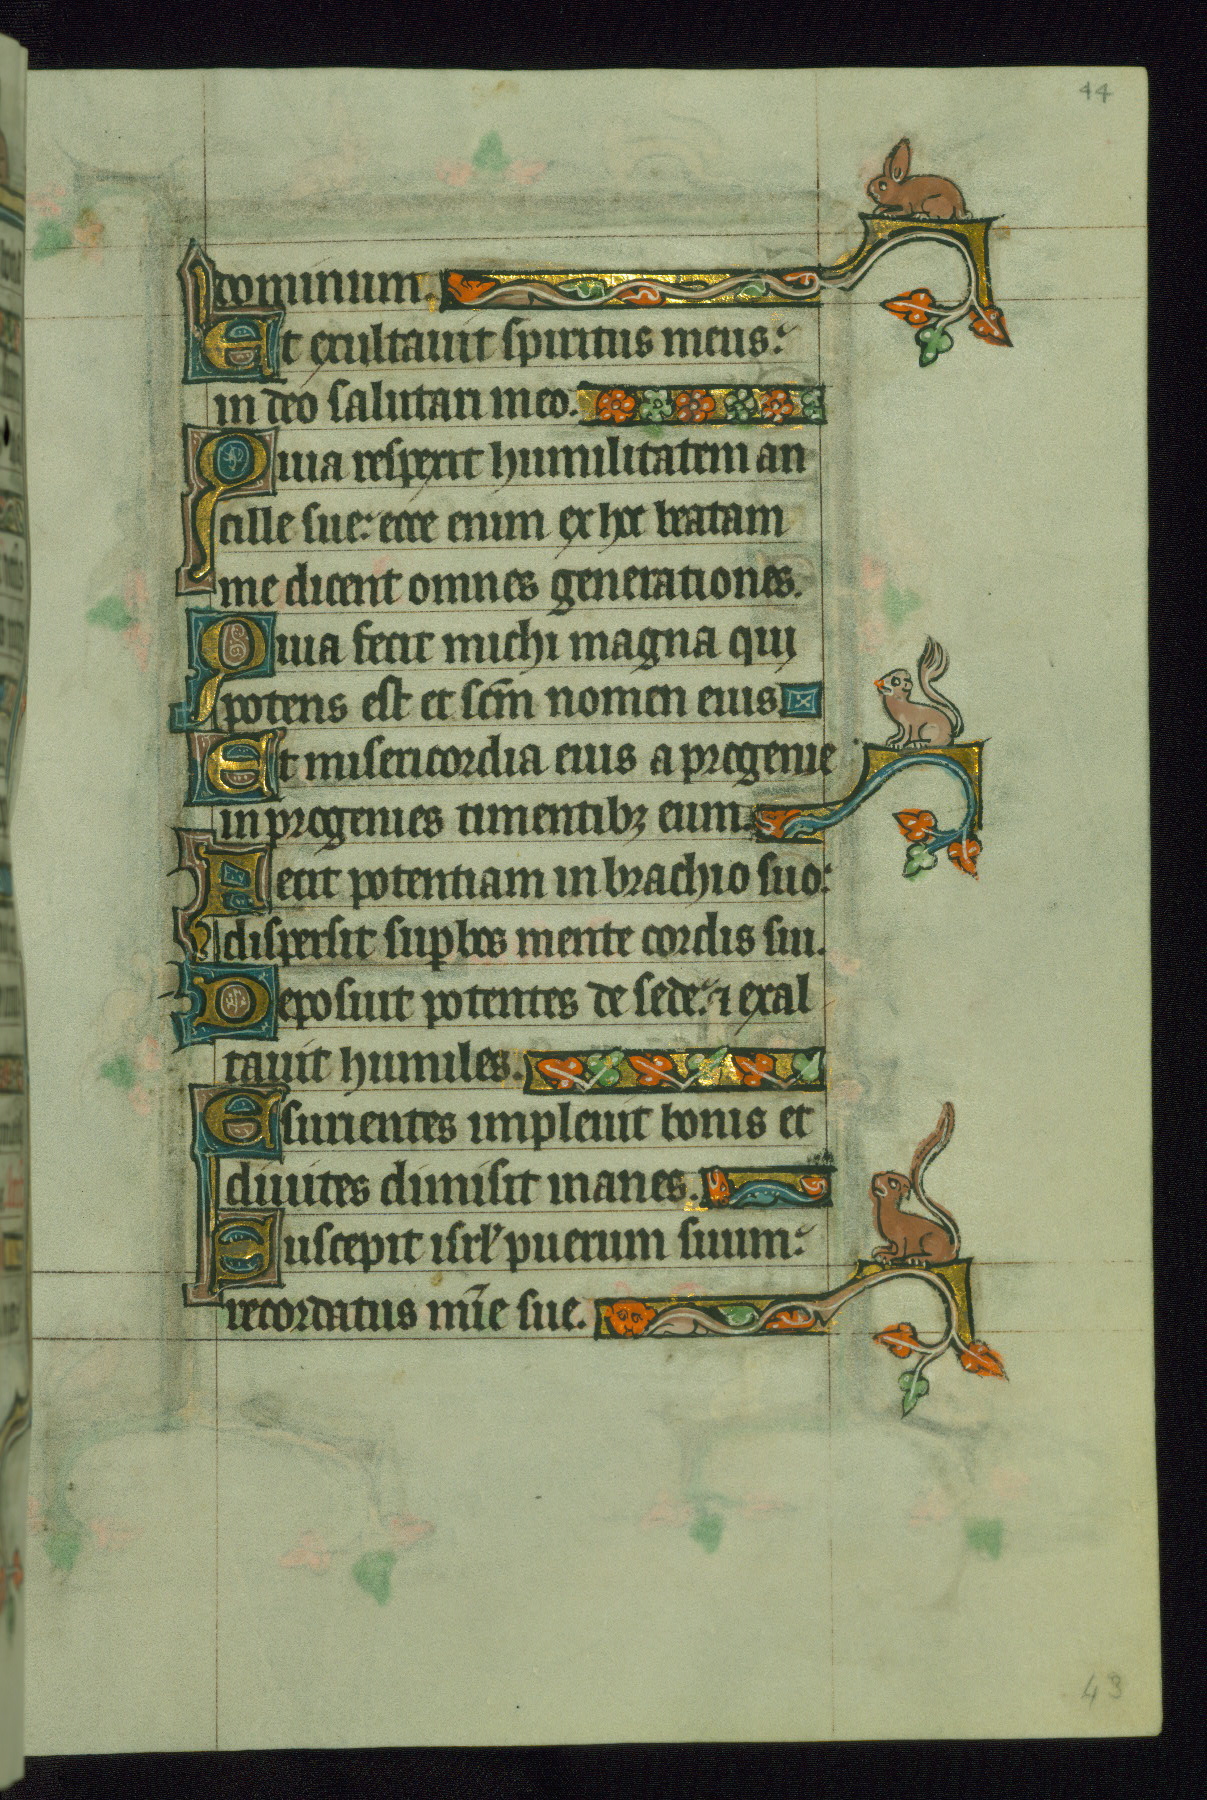 44
dominum.
Et exultauit spiritus meus:
in deo salutari meo.
Quia respexit humilitatem an
cille sue: ecce enim ex hoc beatam
me dicent omnes generationes.
Quia fecit michi magna qui
potens est et scm̄ nomen eius
Et misericordia eius a progenie
in progenies timentibꝫ eum.
Fecit potentiam in brachio suo:
dispersit suꝑbos mente cordis sui.
Deposuit potentes de sede: ⁊ exal
tauit humiles.
Esurientes impleuit bonis et
diuites dimisit inanes.
Suscepit isrl̓ puerum suum:
recordatus mīe sue.
43